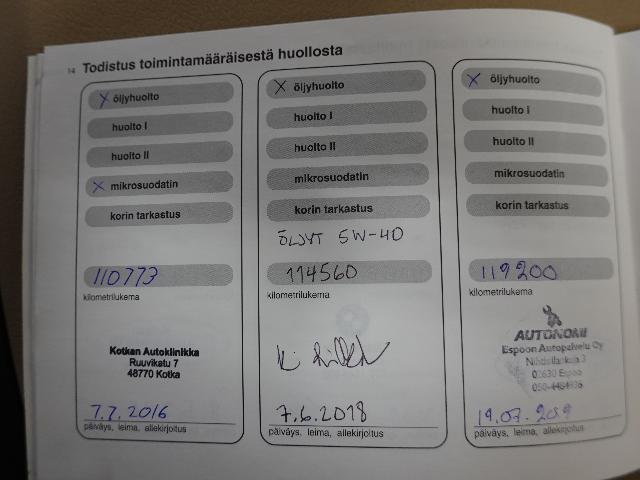 14 Todistus toimintamääräisestä huollosta
X öljyhuolto
huolto I
huolto II
X mikrosuodatin
korin tarkastus
110773
kilometrilukema
Kotkan Autoklinikka
Ruuvikatu 7
48770 Kotka
7.7.2016
päiväys, leima, allekirjoitus
X öljyhuolto
huolto I
huolto II
mikrosuodatin
korin tarkastus
ÖLJYT 5W-40
114560
kilometrilukema
7.6.2018
päiväys, leima, allekirjoitus
X öljyhuolto
huolto I
huolto II
mikrosuodatin
korin tarkastus
119200
kilometrilukema
AUTONOMI
Espoon Autopalvelu Oy
02630 Espoo
19.07.2019
päiväys, leima, allekirjoitus